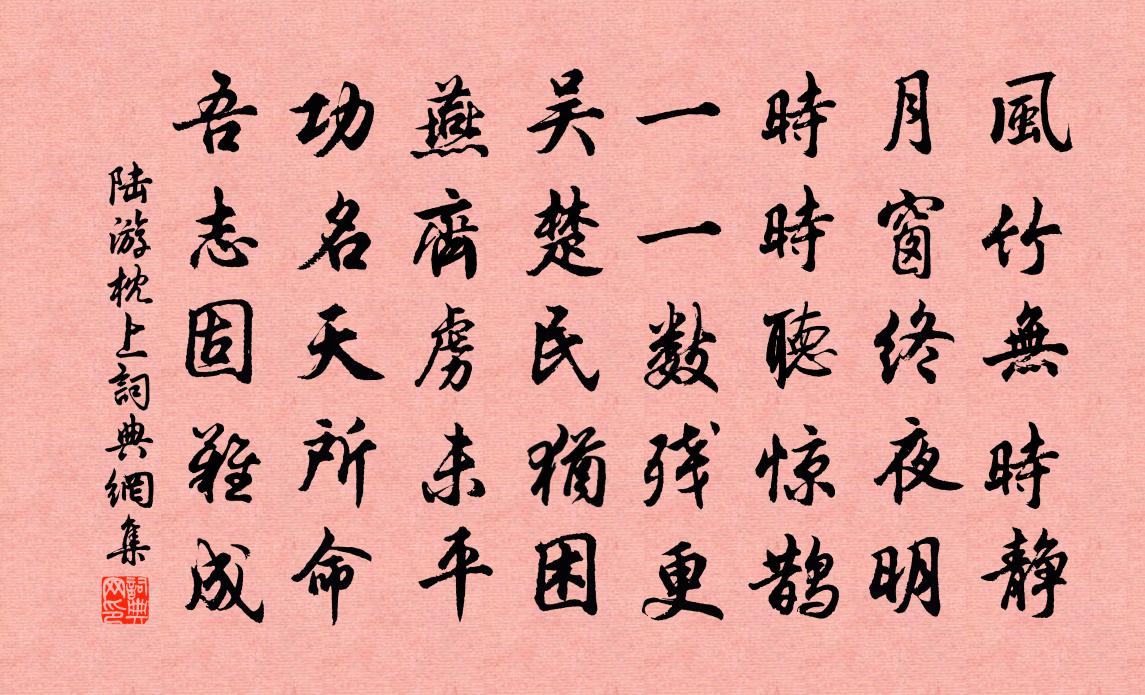 風竹無時靜
月窗终夜明
時時聽惊鹊
一一數残更
吴楚民猶困
燕齊虏未平
功名天所命
吾志固難成
陸游枕上詞典網集
詞典网印